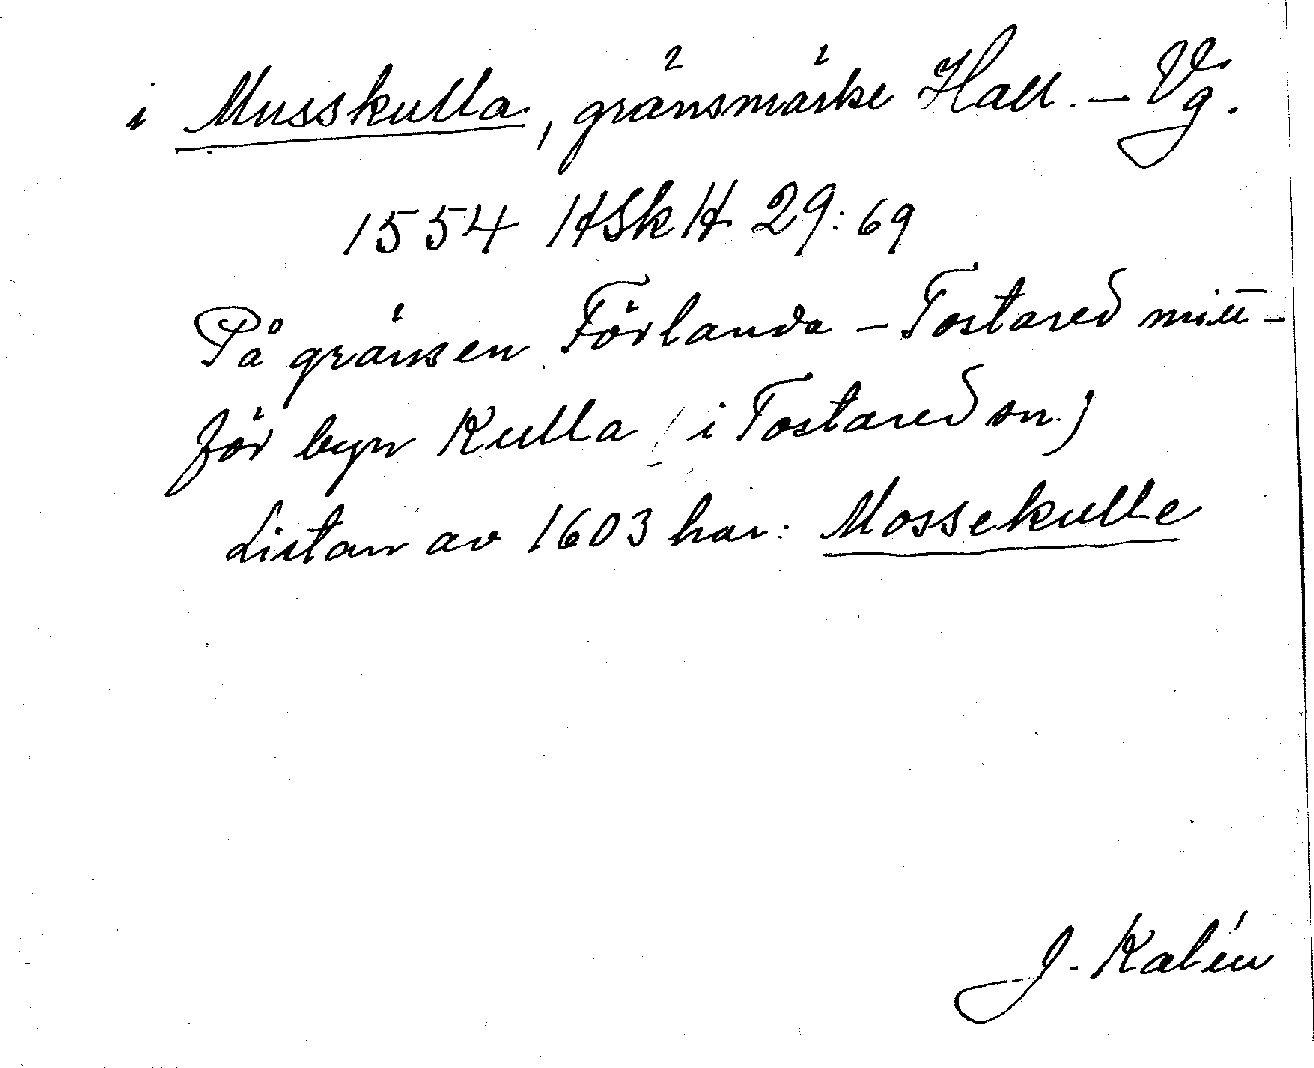 i Musskulla, gränsmärke Hall. – Vg.
1554 HSkH 29:69
På gränsen Förlanda – Tostared mitt-
för byn Kulla (i Tostared sn.)
Listan av 1603 har: Mossekulle
J. Kalén